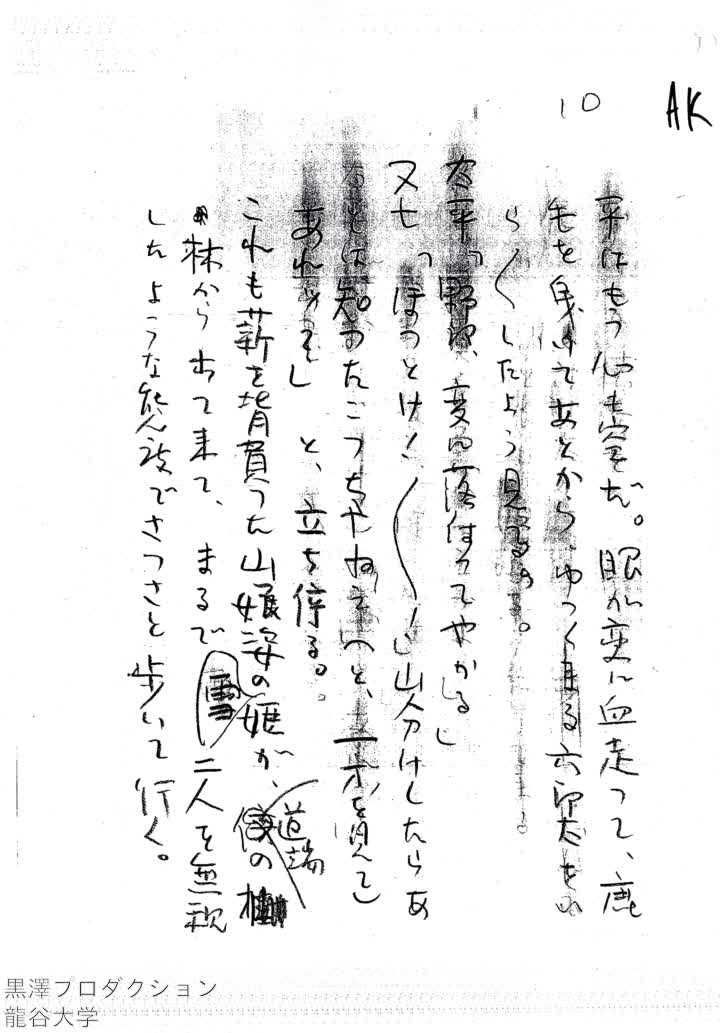 10
AK
平はもう心も空だ。眼が変に血走って、鹿
毛を曳いてあとからゆっくり来る六郎太を
ら〳〵したよう見る。
太平「野郎、変に落付いてやがる」
又七「ほっとけ！〳〵！」山分けしたらあ
とは知ったこっちゃねえ」と、一方を見て」
あれッ！」と、立ち停る。
これも薪を背負った山娘姿の姫が、道端の
林から出て来て、まるで二人を無視
したような態度でさっさと歩いて行く。
黒澤プロダクション
龍谷大学